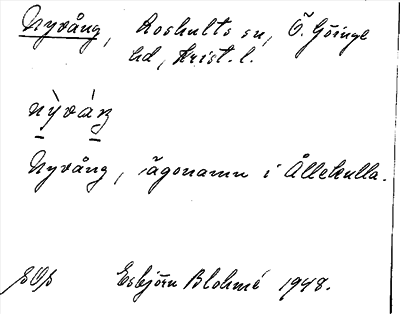 Nyvång, Loshults sn, Ö. Göinge
hd, Krist. l.
Nyvång, ägonamn i Ållekulla.
Esbjörn Blohmé 1948.